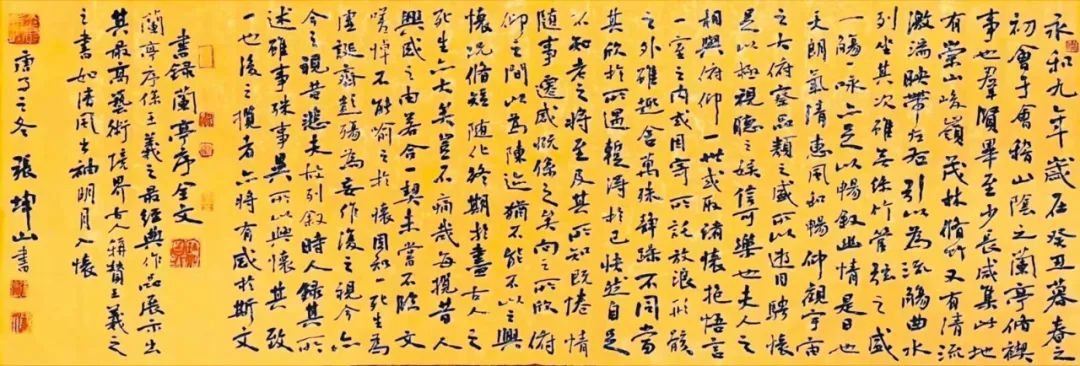 永和九年歲在癸丑暮春之
初會于會稽山陰之蘭亭脩禊
事也羣賢畢至少長咸集此地
有崇山峻嶺茂林脩竹又有清流
激湍映帶左右引以為流觴曲水
列坐其次雖無絲竹管弦之盛
一觴一咏亦足以暢敘幽情是日也
天朗氣清惠風和暢仰觀宇宙
之大俯察品類之盛所以遊目騁懷
足以極視聽之娛信可樂也夫人之
相與俯仰一世或取諸懷抱悟言
一室之內或因寄所託放浪形骸
之外雖趣舍萬殊靜躁不同當
其欣於所遇蹔得於己快然自足
不知老之將至及其所知既倦情
隨事遷感慨係之矣向之所欣俯
仰之間以為陳迹猶不能不以之興
懷況脩短隨化終期於盡古人云
死生亦大矣豈不痛哉每攬昔人
興感之由若合一契未嘗不臨文
嗟悼不能喻之於懷固知一死生為
虛誕齊彭殤為妄作後之視今亦
今之視昔悲夫故列敘時人錄其所
述雖事殊事異所以興懷其致
一也後之攬者亦將有感於斯文
書録蘭亭序全文
蘭亭序係王羲之最經典作品展示出
其最高藝術境界古人稱贊王羲之
之書如清風出袖明月入懷
庚子之冬 張坤山書